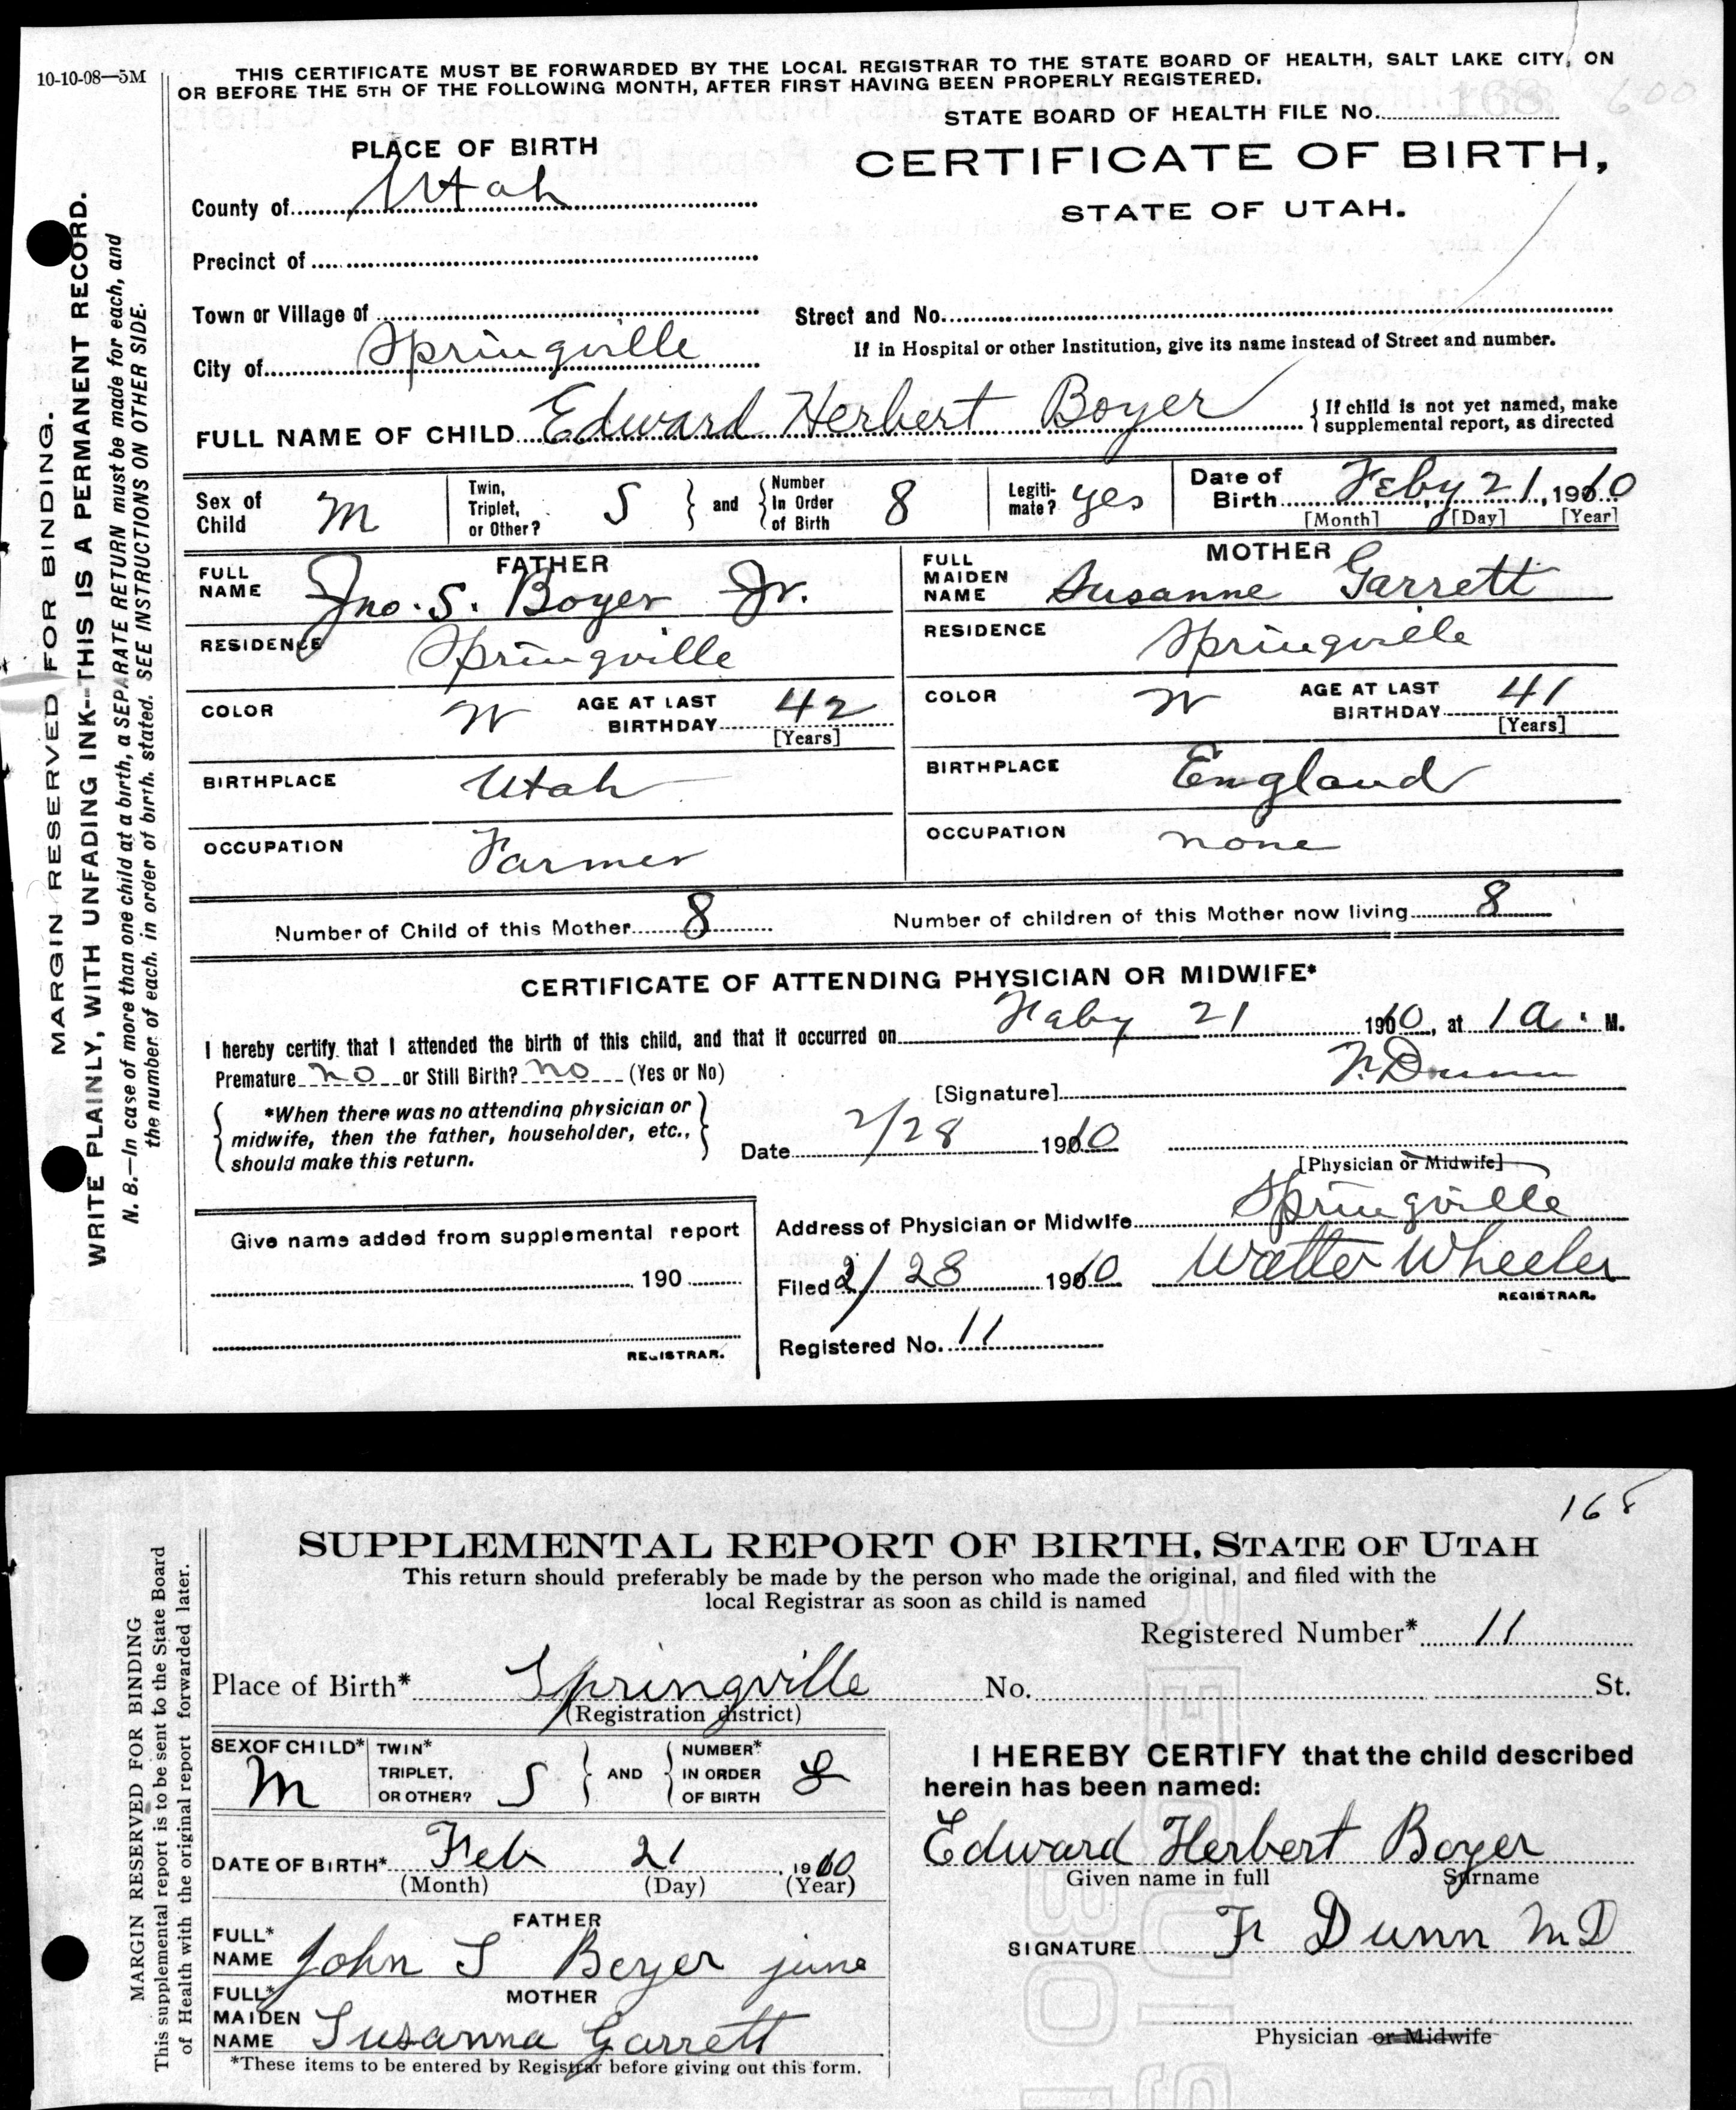 10-10-08—5M
THIS CERTIFICATE MUST BE FORWARDED BY THE LOCAL REGISTRAR TO THE STATE BOARD OF HEALTH, SALT LAKE CITY, ON
OR BEFORE THE 5TH OF THE FOLLOWING MONTH, AFTER FIRST HAVING BEEN PROPERLY REGISTERED.
STATE BOARD OF HEALTH FILE No. 168 600
PLACE OF BIRTH
CERTIFICATE OF BIRTH,
STATE OF UTAH.
County of Utah
Precinct of
Town or Village of
Street and No.
If in Hospital or other Institution, give its name instead of Street and number.
City of Springville
FULL NAME OF CHILD Edward Herbert Boyer
{If child is not yet named, make
supplemental report, as directed
Sex of Child M
Twin, Triplet, or Other? S } and { Number In Order of Birth 8
Legiti-mate? yes
Date of Birth Feby 21, 1910
[Month] [Day] [Year]
FATHER
FULL NAME Jno. S. Boyer Jr.
RESIDENCE Springville
COLOR W AGE AT LAST BIRTHDAY 42
[Years]
BIRTHPLACE Utah
OCCUPATION Farmer
MOTHER
FULL MAIDEN NAME Susanne Garrett
RESIDENCE Springville
COLOR W AGE AT LAST BIRTHDAY 41
[Years]
BIRTHPLACE England
OCCUPATION none
Number of Child of this Mother 8 Number of children of this Mother now living 8
CERTIFICATE OF ATTENDING PHYSICIAN OR MIDWIFE*
I hereby certify that I attended the birth of this child, and that it occurred on Feby 21 1910, at 1 a. M.
Premature no or Still Birth? no (Yes or No)
[Signature] F. Dunn
{ *When there was no attending physician or
midwife, then the father, householder, etc.,
should make this return. }
Date 2/28 1910
[Physician or Midwife]
Address of Physician or Midwife Springville
Filed 2/28 1910 Walter Wheeler
REGISTRAR.
Registered No. 11
Give name added from supplemental report
190
REGISTRAR.
MARGIN RESERVED FOR BINDING.
WRITE PLAINLY, WITH UNFADING INK—THIS IS A PERMANENT RECORD.
N. B.—In case of more than one child at a birth, a SEPARATE RETURN must be made for each, and
the number of each. in order of birth. stated. SEE INSTRUCTIONS ON OTHER SIDE.
168
SUPPLEMENTAL REPORT OF BIRTH, STATE OF UTAH
This return should preferably be made by the person who made the original, and filed with the
local Registrar as soon as child is named
Registered Number* 11
Place of Birth* Springville No. St.
(Registration district)
SEX OF CHILD* M
TWIN* TRIPLET, OR OTHER? S } AND { NUMBER* IN ORDER OF BIRTH 8
DATE OF BIRTH* Feb 21, 1910
(Month) (Day) (Year)
FATHER
FULL* NAME John S Boyer june
MOTHER
FULL* MAIDEN NAME Susanna Garrett
*These items to be entered by Registrar before giving out this form.
I HEREBY CERTIFY that the child described
herein has been named:
Edward Herbert Boyer
Given name in full Surname
SIGNATURE F Dunn M D
Physician or Midwife
MARGIN RESERVED FOR BINDING
This supplemental report is to be sent to the State Board
of Health with the original report forwarded later.